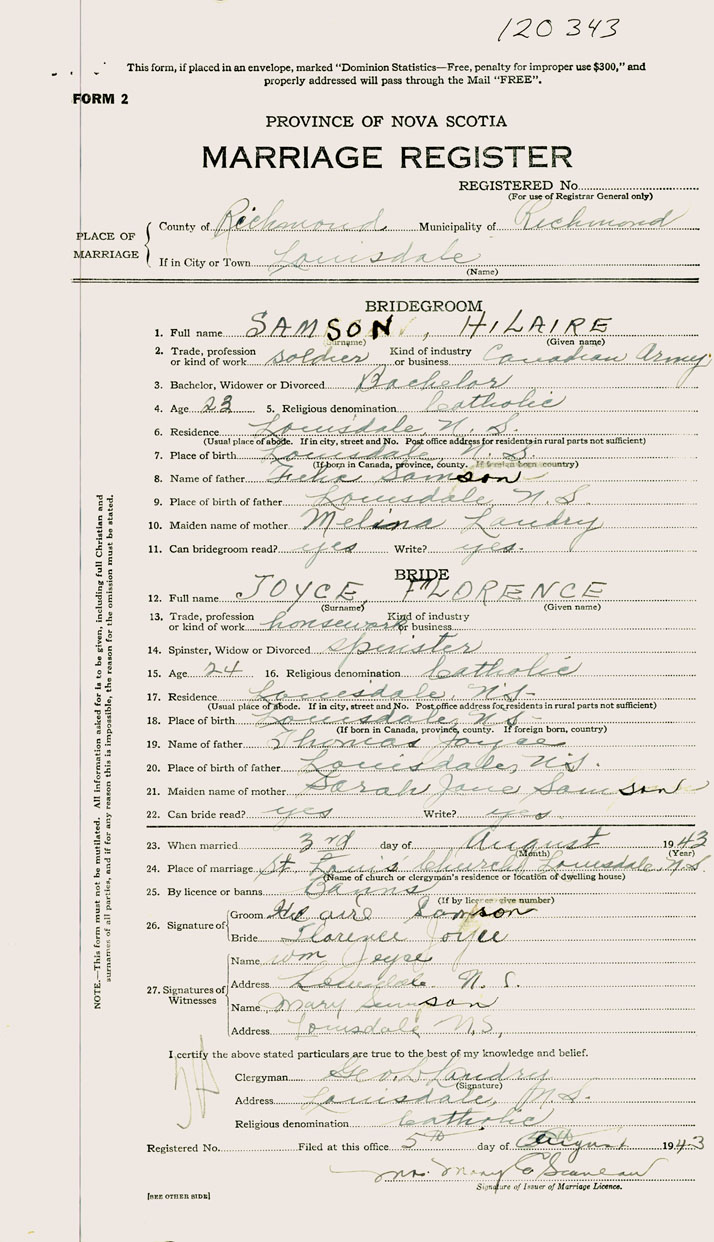 120343
This form, if placed in an envelope, marked "Dominion Statistics—Free, penalty for improper use $300," and
properly addressed will pass through the Mail "FREE".
FORM 2
PROVINCE OF NOVA SCOTIA
MARRIAGE REGISTER
REGISTERED No.
(For use of Registrar General only)
PLACE OF MARRIAGE
County of Richmond Municipality of Richmond
If in City or Town Louisdale
(Name)
BRIDEGROOM
1. Full name SAMSON, HILAIRE
(Surname) (Given name)
2. Trade, profession or kind of work soldier Kind of industry or business Canadian Army
3. Bachelor, Widower or Divorced Bachelor
4. Age 23 5. Religious denomination Catholic
6. Residence Louisdale, N. S.
(Usual place of abode. If in city, street and No. Post office address for residents in rural parts not sufficient)
7. Place of birth Louisdale, N. S.
(If born in Canada, province, county. If foreign born country)
8. Name of father Samson
9. Place of birth of father Louisdale, N.S.
10. Maiden name of mother Melina Landry
11. Can bridegroom read? yes Write? yes.
BRIDE
12. Full name JOYCE, FLORENCE
(Surname) (Given name)
13. Trade, profession or kind of work housework Kind of industry or business
14. Spinster, Widow or Divorced Spinster
15. Age 24 16. Religious denomination Catholic
17. Residence Louisdale, N.S.
(Usual place of abode. If in city, street and No. Post office address for residents in rural parts not sufficient)
18. Place of birth Louisdale, N.S.
(If born in Canada, province, county. If foreign born, country)
19. Name of father Thomas Joyce
20. Place of birth of father Louisdale, N.S.
21. Maiden name of mother Sarah Jane Samson
22. Can bride read? yes Write? yes.
23. When married 3rd day of August 1943
(Month) (Year)
24. Place of marriage St Louis Church, Louisdale N.S.
(Name of church or clergyman's residence or location of dwelling house)
25. By licence or banns Banns
(If by licence give number)
26. Signature of
Groom Hilaire Samson
Bride Florence Joyce
27. Signatures of Witnesses
Name Wm Joyce
Address Louisdale N. S.
Name Mary Samson
Address Louisdale N.S,
I certify the above stated particulars are true to the best of my knowledge and belief.
Clergyman Geo. D Landry
(Signature)
Address Louisdale, N.S.
Religious denomination Catholic
Registered No. Filed at this office 5th day of August 1943
Mrs. Mary E
Signature of Issuer of Marriage Licence.
[SEE OTHER SIDE]
NOTE.—This form must not be mutilated. All information asked for is to be given, including full Christian and
surnames of all parties, and if for any reason this is impossible, the reason for the omission must be stated.